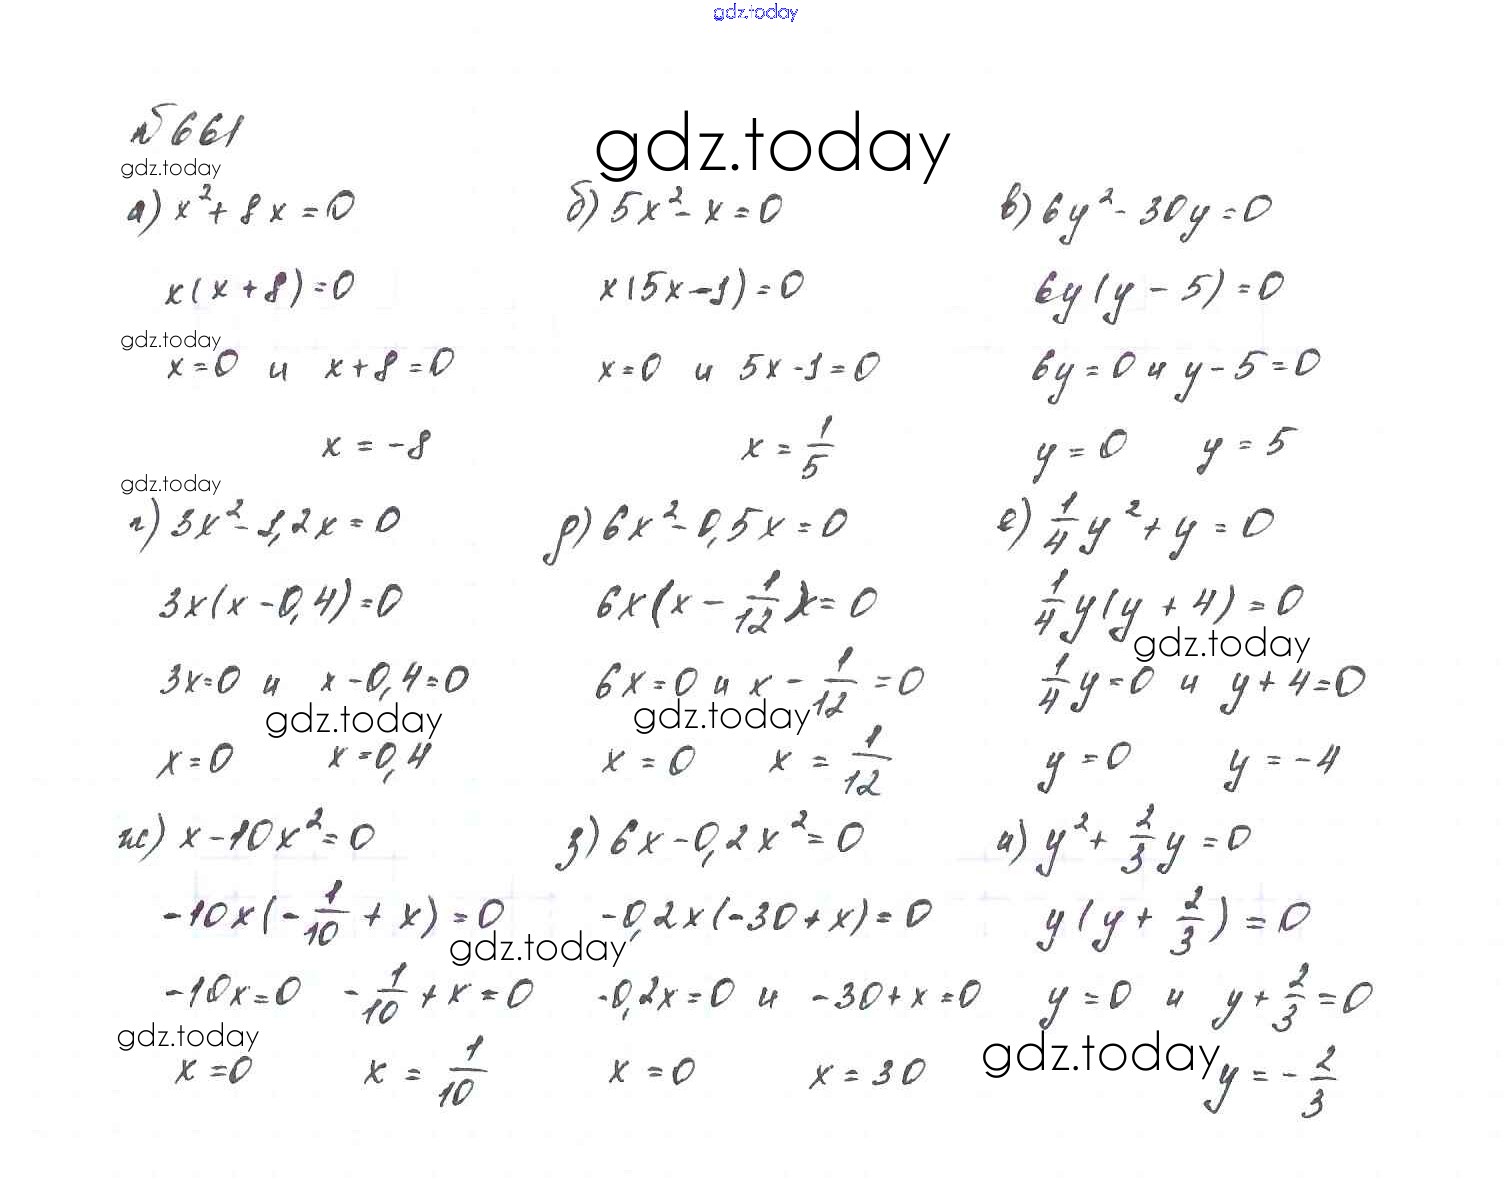 gdz.today
№661
gdz.today
gdz.today
а) x² + 8x = 0
x(x + 8) = 0
gdz.today
x = 0 и x + 8 = 0
x = -8
б) 5x² - x = 0
x(5x - 1) = 0
x = 0 и 5x - 1 = 0
x = 1/5
в) 6y² - 30y = 0
6y(y - 5) = 0
6y = 0 и y - 5 = 0
y = 0 y = 5
gdz.today
г) 3x² - 1,2x = 0
3x(x - 0,4) = 0
3x = 0 и x - 0,4 = 0
gdz.today
x = 0 x = 0,4
д) 6x² - 0,5x = 0
6x(x - 1/12) = 0
6x = 0 и x - 1/12 = 0
gdz.today
x = 0 x = 1/12
е) 1/4 y² + y = 0
1/4 y(y + 4) = 0
gdz.today
1/4 y = 0 и y + 4 = 0
y = 0 y = -4
ж) x - 10x² = 0
-10x(-1/10 + x) = 0
gdz.today
-10x = 0 -1/10 + x = 0
gdz.today
x = 0 x = 1/10
з) 6x - 0,2x² = 0
-0,2x(-30 + x) = 0
-0,2x = 0 и -30 + x = 0
x = 0 x = 30
и) y² + 2/3 y = 0
y(y + 2/3) = 0
y = 0 и y + 2/3 = 0
gdz.today
y = -2/3